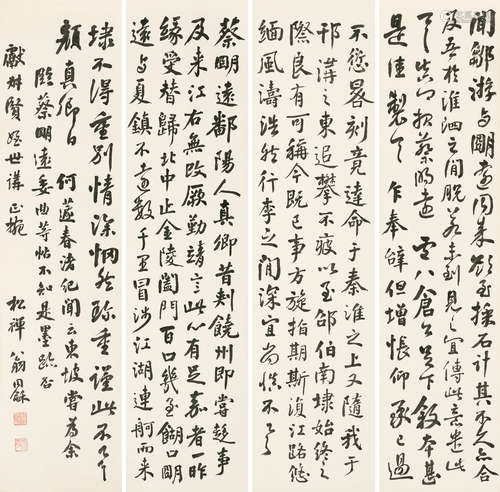 蔡明遠鄱陽人真卿昔刺饒州即嘗趨事
及来江右無改厥勤靖言此心有足嘉者一昨
緣受替歸北中止金陵闔門百口幾至餬口明
遠与夏鎮不遠數千里冒涉江湖連舸而来
不愆晷刻竟達命于秦淮之上又隨我于
邗溝之東追攀不疲以至邵伯南埭始終之
際良有可稱今既已事方旋指期斯復江路悠
緬風濤浩然行李之間深宜尚慎不了
聞鄒游与明遠同来欲至採石計其不久亦合
及吾於淮泗之間脫若未到見之宜傳此意此
了真卿報蔡明遠 八倉足下叙本甚
是佳製了乍奉辭但增悵仰承已過
埭不得重別情深惘然珍重謹此不了
顏真卿白 何薳春渚紀聞云東坡嘗為余
臨蔡明遠委曲等帖不知是墨跡否
獻叔賢姪世講正腕
松禪翁同龢